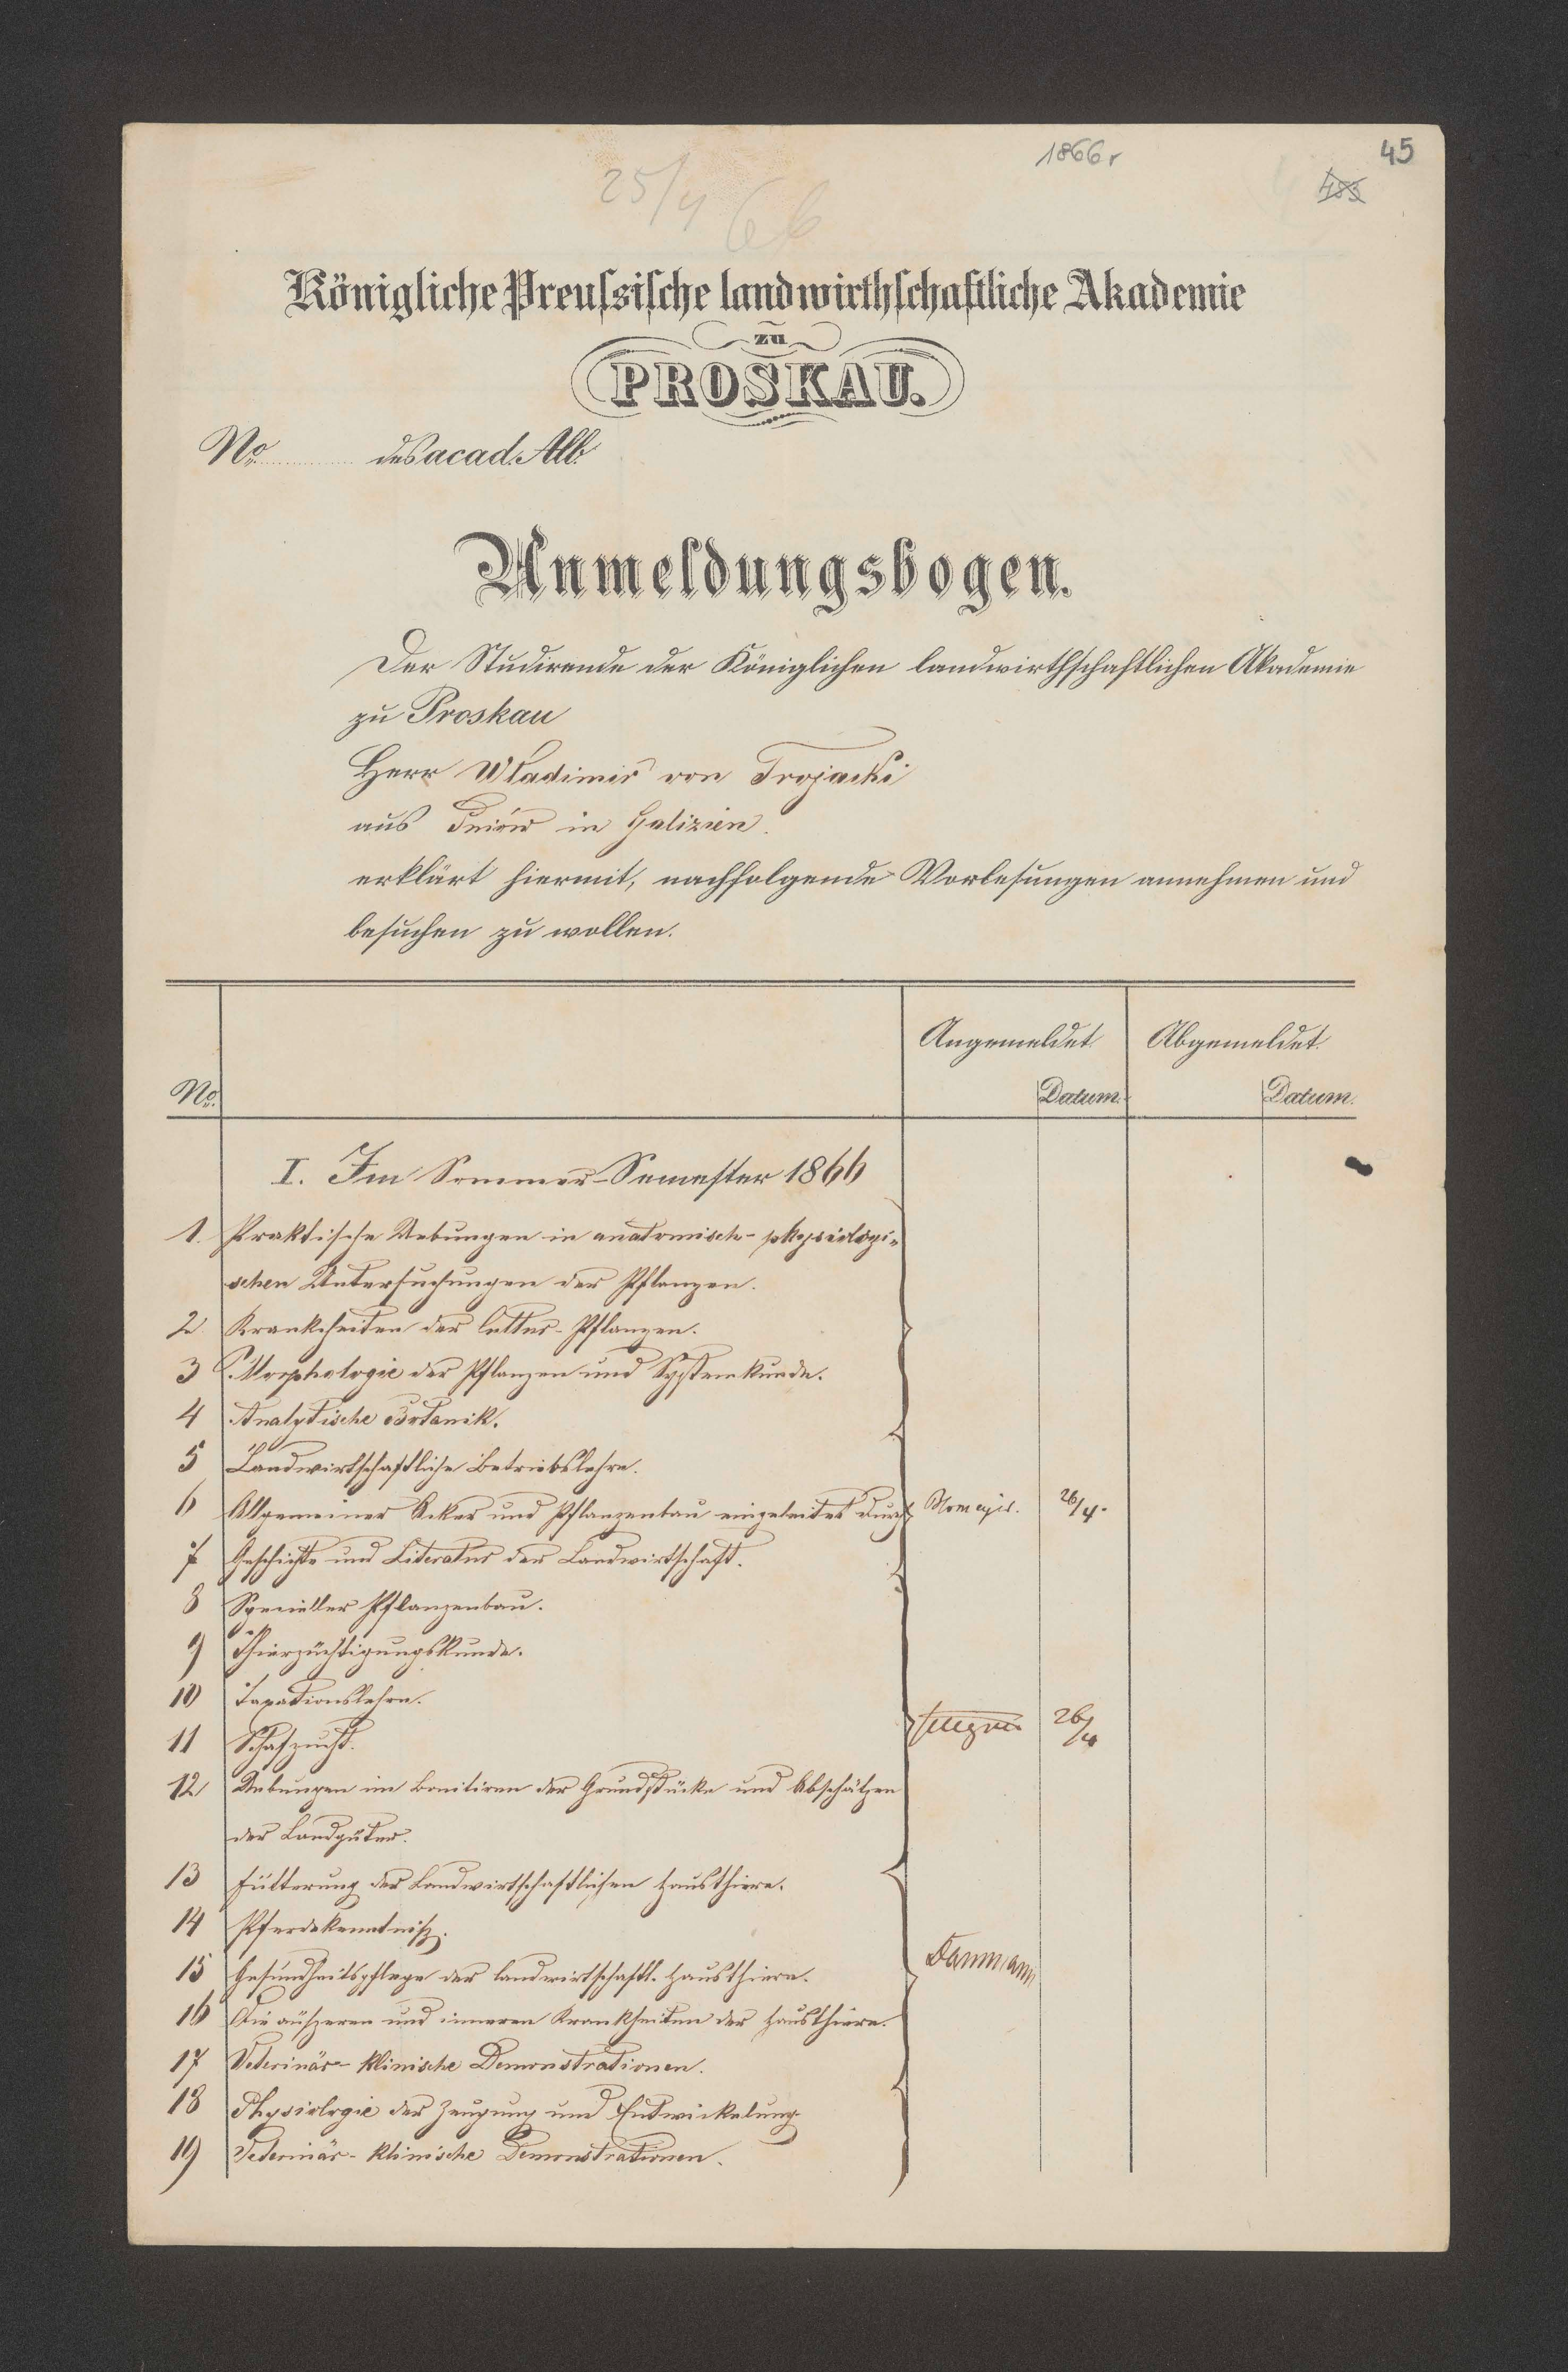 1866r
45
483
25/4 66
Königliche Preussische landwirthschaftliche Akademie
zu
PROSKAU.
No des acad. Alb.
Anmeldungsbogen.
Der Studirende der Königlichen landwirthschaftlichen Akademie
zu Proskau
Herr Wladimir von Trojacki
aus in Galizien.
erklärt hiermit, nachfolgende Vorlesungen annehmen und
besuchen zu wollen.
No. Angemeldet Datum. Abgemeldet. Datum.
I. Im Sommer-Semester 1866
1. Praktische Uebungen in anatomisch-physiologi-
schen Untersuchungen der Pflanzen.
2 Krankheiten der Cultur-Pflanzen.
3 Morphologie der Pflanzen und Systemkunde.
4 Analytische Botanik.
5 Landwirtschaftliche Betriebslehre.
6 Allgemeiner Acker und Pflanzenbau eingeleitet durch 26/4.
7 Geschichte und Literatur der Landwirtschaft.
8 Specieller Pflanzenbau.
9 Thierzüchtigungskunde.
10 Taxationslehre.
11 Schafzucht. 26/4
12 Uebungen im Bonitiren der Grundstücke und Abschätzen
der Landgüter.
13 Fütterung der Landwirtschaftlichen Hausthiere.
14 Pferdekenntniß.
15 Gesundheitspflege der landwirtschaftl. Hausthiere. Dammann
16 Die äußeren und inneren Krankheiten der Hausthiere.
17 Veterinär-klinische Demonstrationen.
18 Physiologie der Zeugung und Entwickelung
19 Veterinär-klinische Demonstrationen.